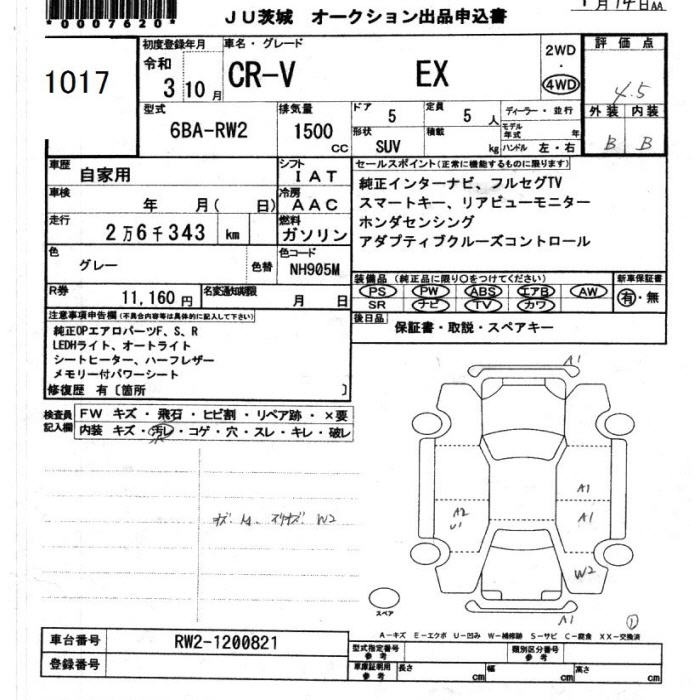 *0007620*
JU茨城 オークション出品申込書
1月14日AA
1017
初度登録年月
令和
3 10月
車名・グレード
CR-V EX
2WD
・
4WD
評価点
4.5
外装 内装
B B
型式
6BA-RW2
排気量
1500
CC
ドア
5
定員
5
人
形状
SUV
積載
kg
ディーラー・並行
モデル年式
年
ハンドル 左・右
車歴
自家用
シフト
IAT
車検
年 月( 日)
冷房
AAC
走行
2万6千343 km
燃料
ガソリン
色
グレー
色替
色コード
NH905M
R券
11,160円
名変通知期限
月 日
セールスポイント(正常に機能するものに限ります)
純正インターナビ、フルセグTV
スマートキー、リアビューモニター
ホンダセンシング
アダプティブクルーズコントロール
装備品 (純正品に限り○をつけてください)
PS PW ABS エアB AW
SR ナビ TV カワ
新車保証書
有・無
後日品
保証書・取説・スペアキー
注意事項申告欄(不具合内容等は具体的に記入して下さい)
純正OPエアロパーツF、S、R
LEDHライト、オートライト
シートヒーター、ハーフレザー
メモリー付パワーシート
修復歴 有〔箇所 〕
検査員記入欄
FW キズ・飛石・ヒビ割・リペア跡・×要
内装 キズ・汚レ・コゲ・穴・スレ・キレ・破レ
W2
A1
A1
A1
A2
U1
W2
A1
①
スペア
A-キズ E-エクボ U-凹み W-補修跡 S-サビ C-腐食 XX-交換済
車台番号
RW2-1200821
登録番号
型式指定番号
参考
類別区分番号
参考
車庫証明用
参考
長さ cm
幅 cm
高さ cm